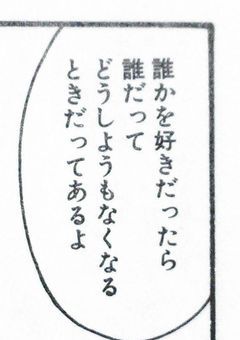 誰かを好きだったら
誰だって
どうしようもなくなる
ときだってあるよ